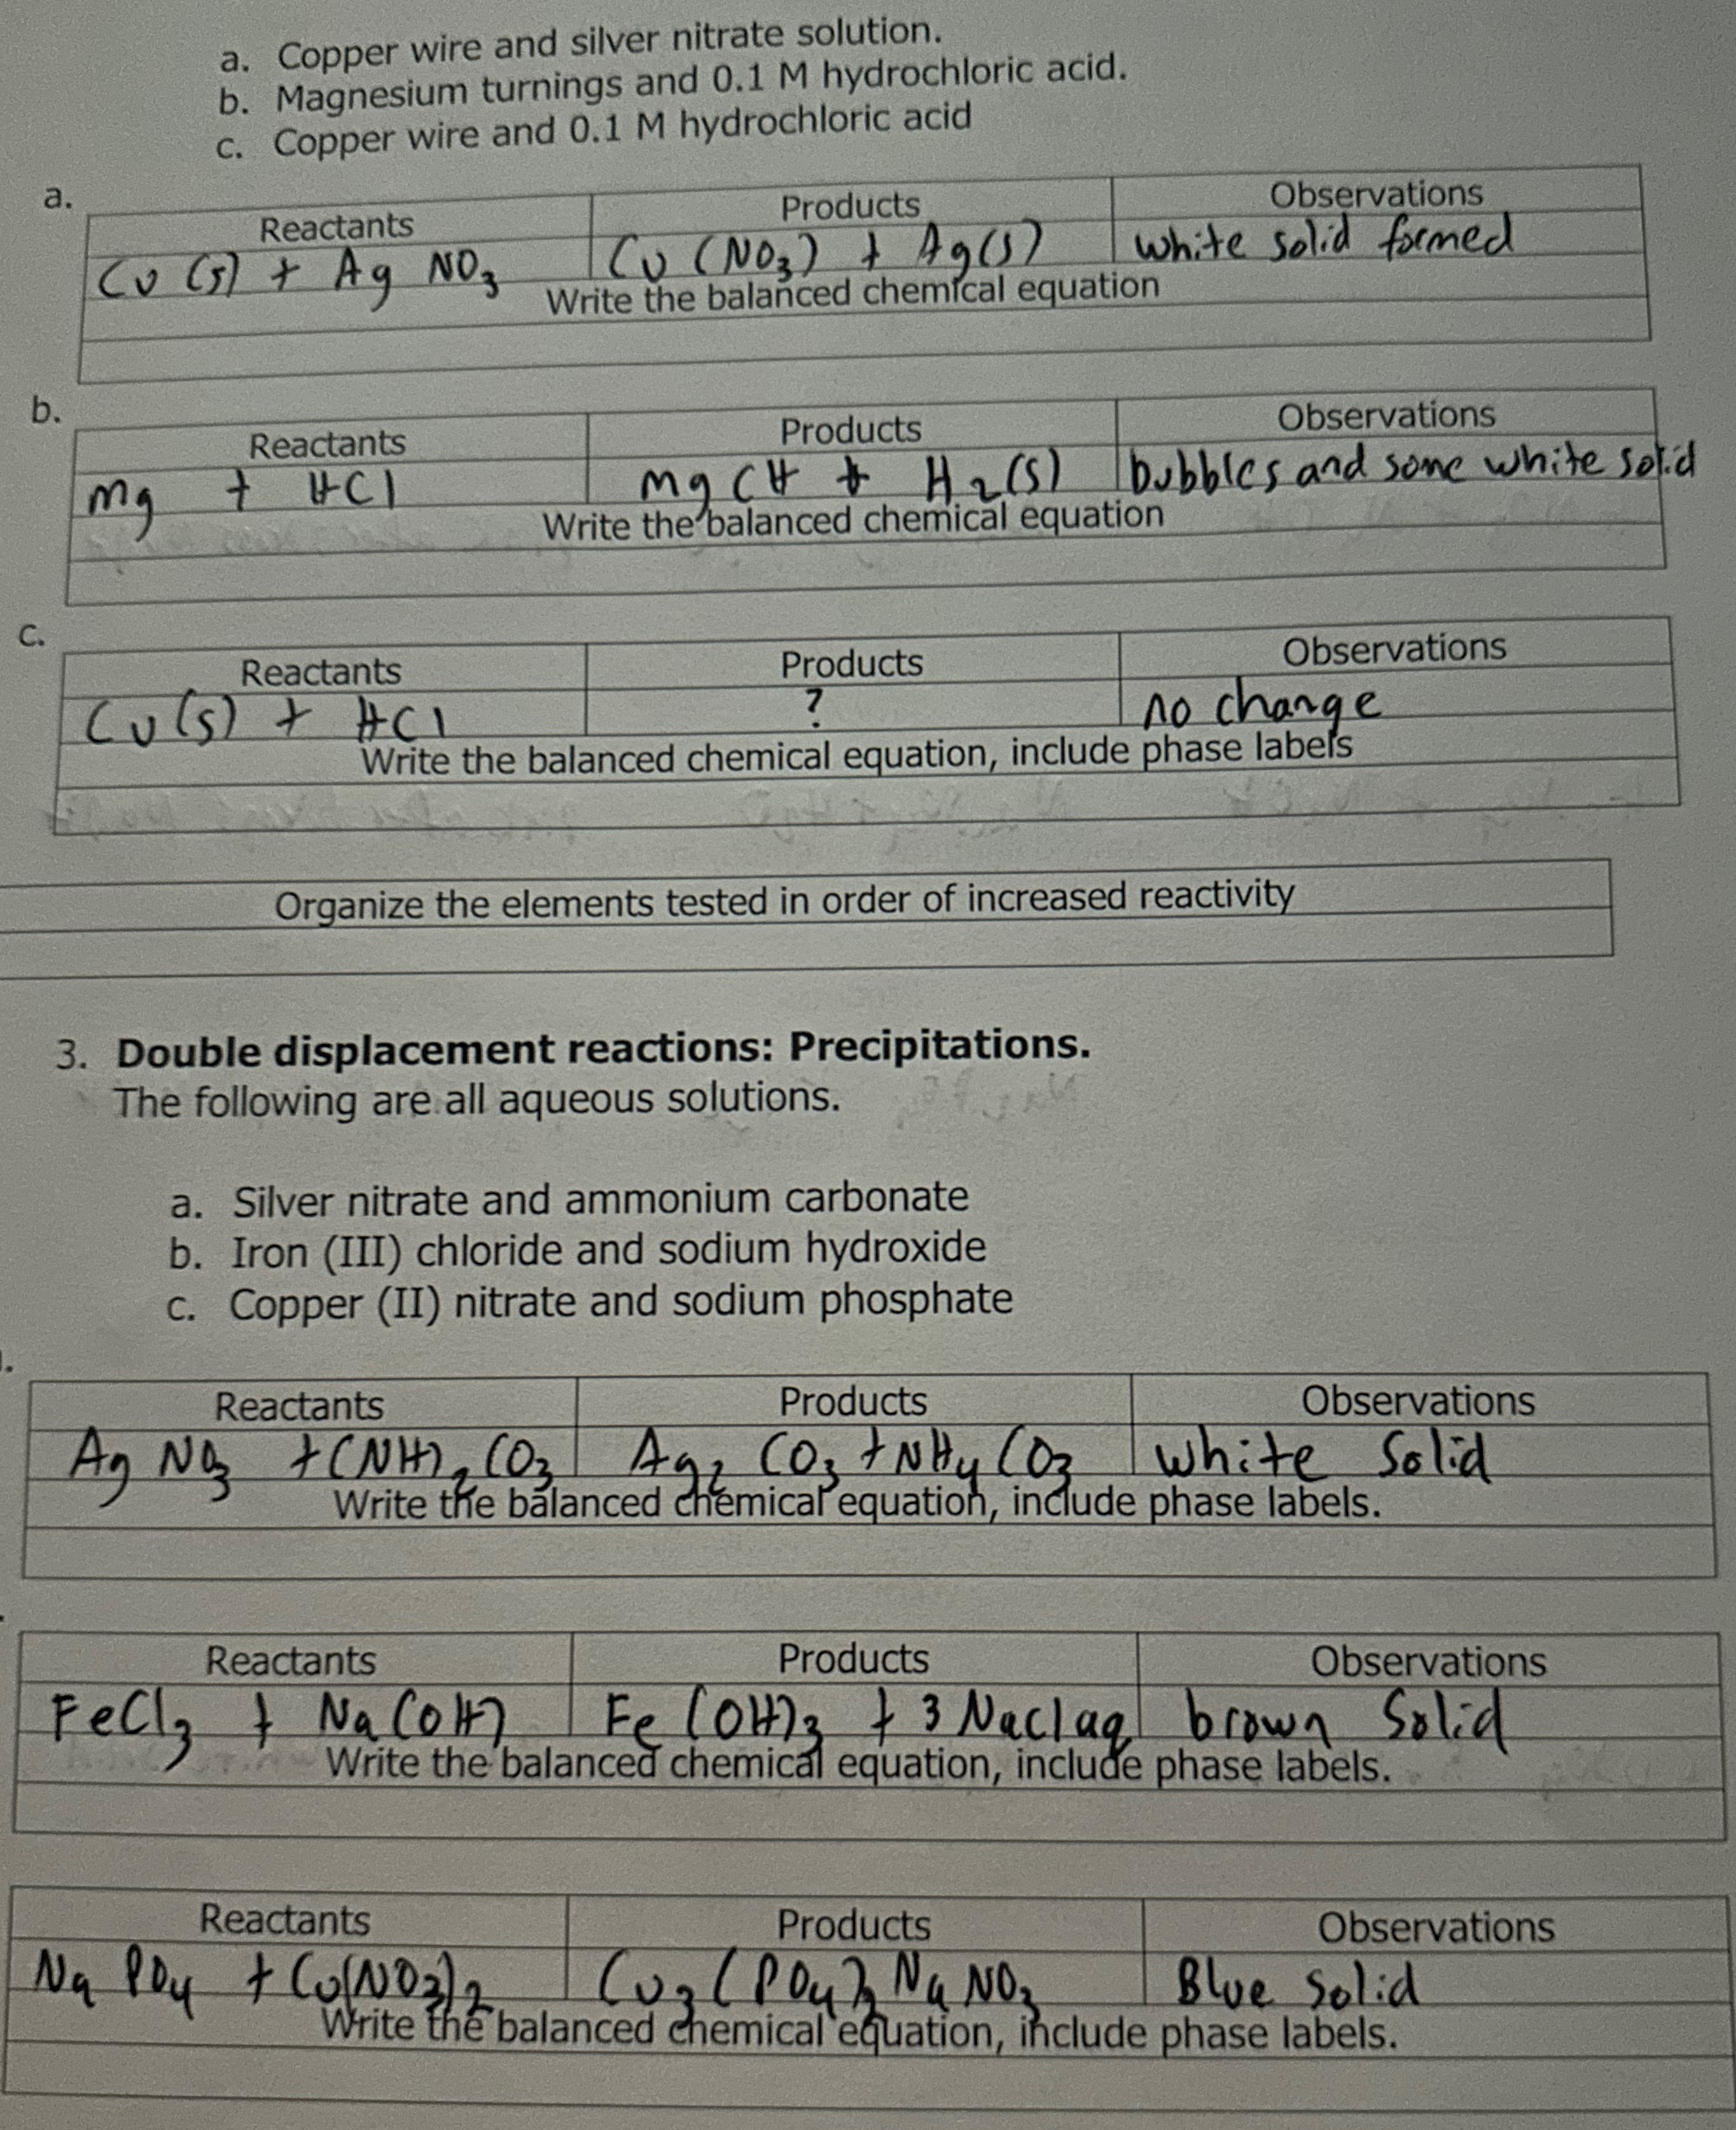 a. Copper wire and silver nitrate solution.
b. Magnesium turnings and 0.1 M hydrochloric acid.
c. Copper wire and 0.1 M hydrochloric acid
a.
Reactants Products Observations
Cu (s) + Ag NO3 Cu (NO3) + Ag(s) white solid formed
Write the balanced chemical equation
b.
Reactants Products Observations
Mg + HCl Mg Cl + H2(s) bubbles and some white solid
Write the balanced chemical equation
c.
Reactants Products Observations
Cu(s) + HCl ? no change
Write the balanced chemical equation, include phase labels
Organize the elements tested in order of increased reactivity
3. Double displacement reactions: Precipitations.
The following are all aqueous solutions.
a. Silver nitrate and ammonium carbonate
b. Iron (III) chloride and sodium hydroxide
c. Copper (II) nitrate and sodium phosphate
Reactants Products Observations
Ag NO3 + (NH)2 CO3 Ag2 CO3 + NH4 CO3 white Solid
Write the balanced chemical equation, include phase labels.
Reactants Products Observations
FeCl3 + Na (OH) Fe (OH)3 + 3 Naclaq brown Solid
Write the balanced chemical equation, include phase labels.
Reactants Products Observations
Na PO4 + Cu(NO3)2 Cu3 (PO4)2 Na NO3 Blue Solid
Write the balanced chemical equation, include phase labels.